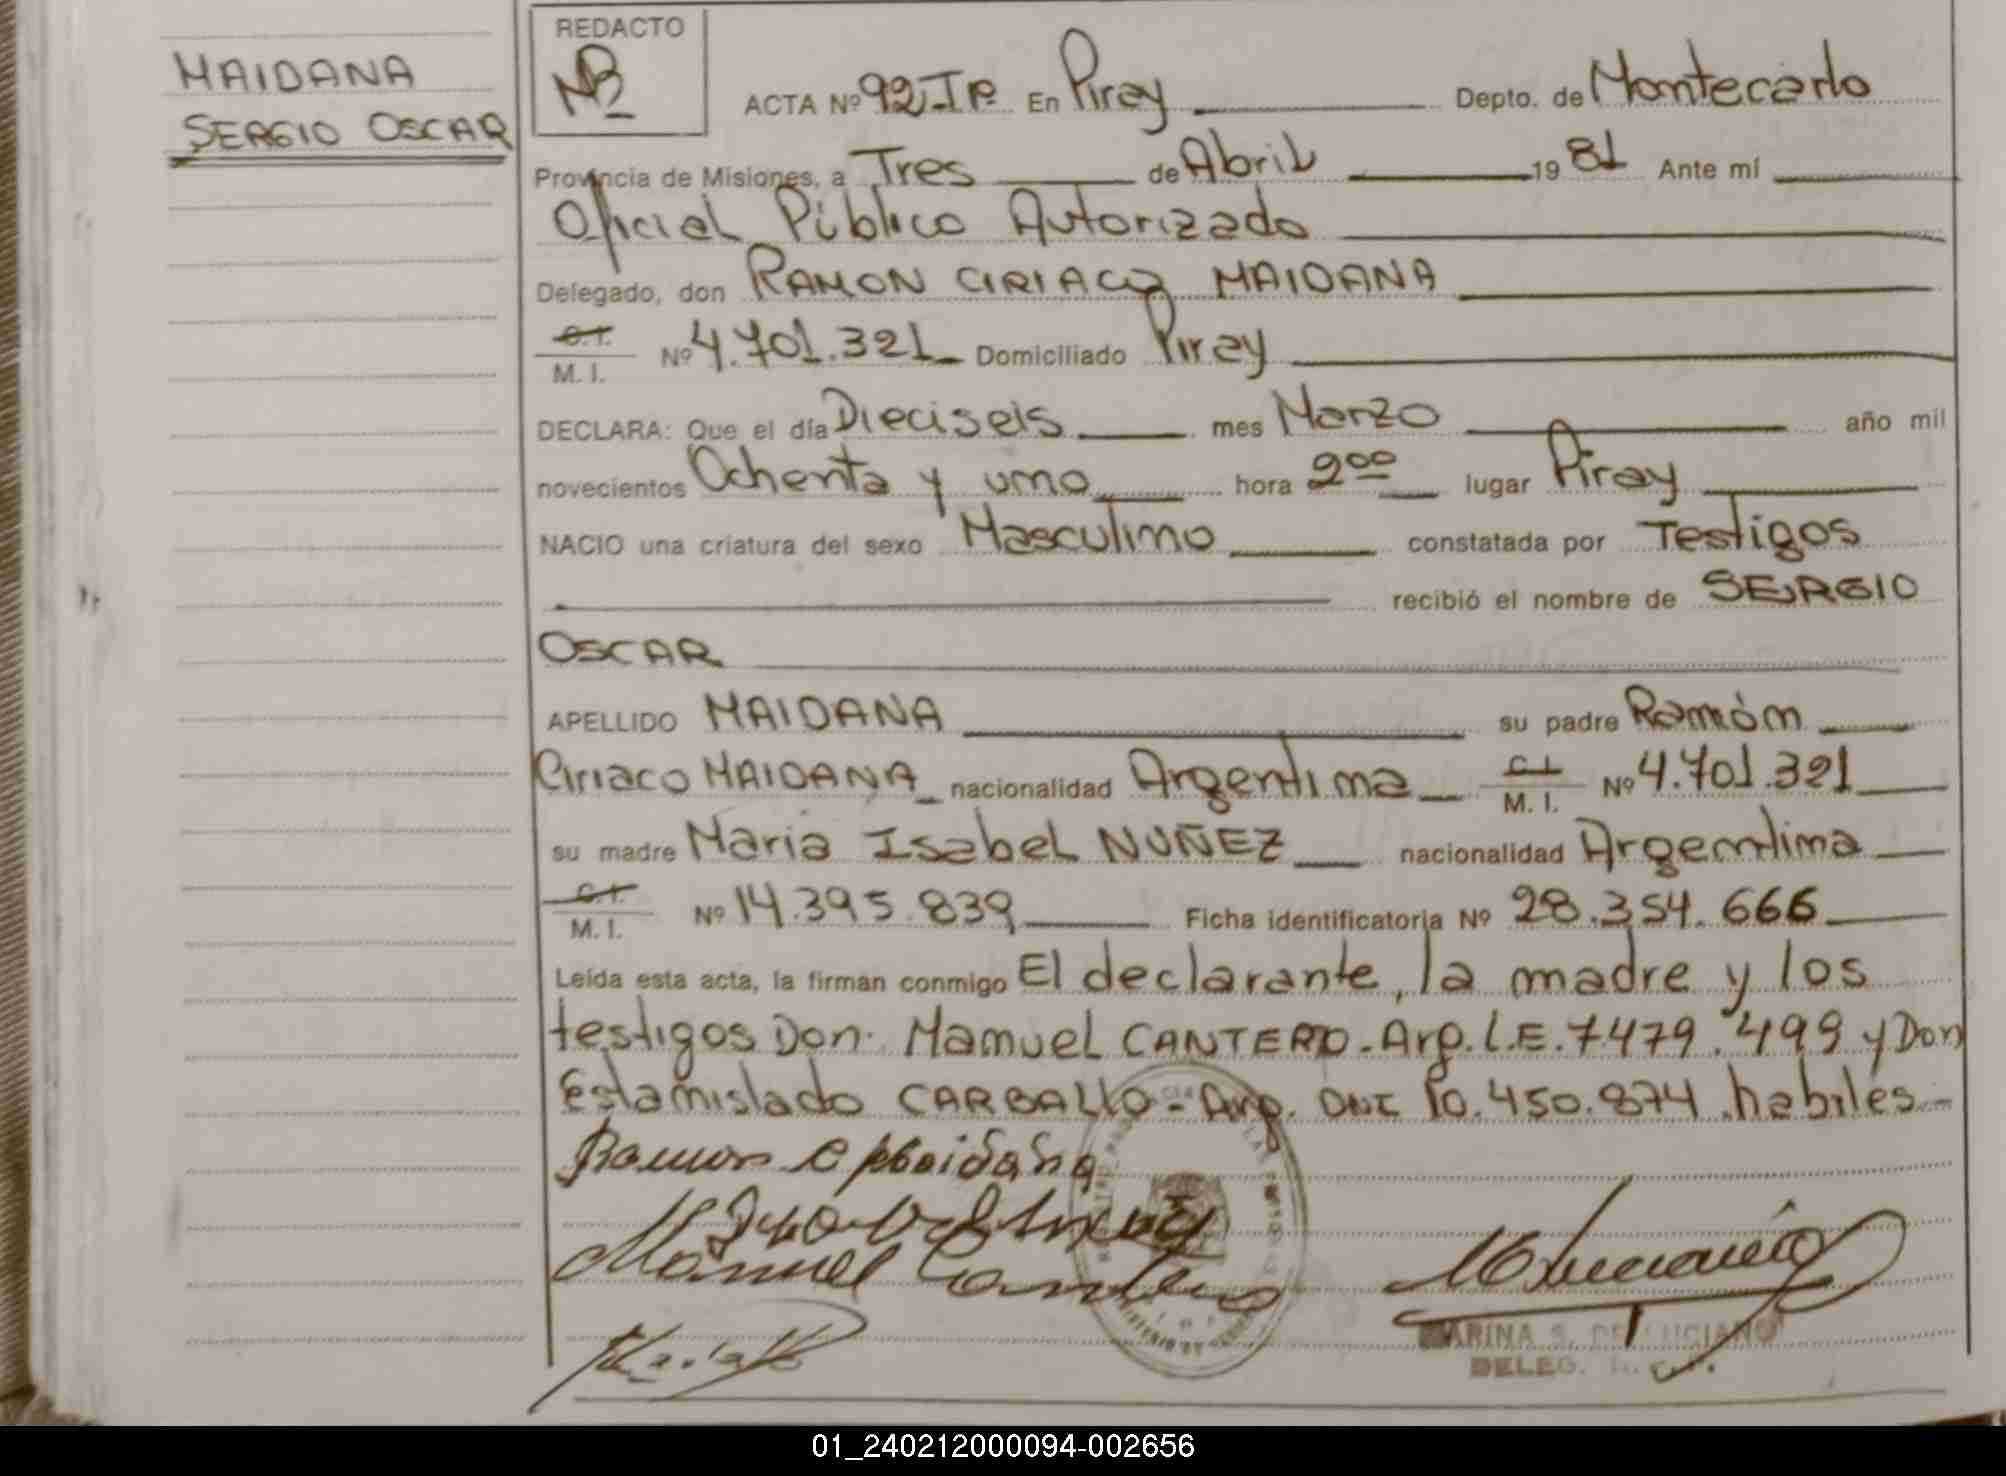 MAIDANA
SERGIO OSCAR
REDACTO
ACTA Nº 92 Iº En Piray Depto. de Montecarlo
Provincia de Misiones, a Tres de Abril 19 81 Ante mí
Oficial Público Autorizado
Delegado, don RAMON CIRIACO MAIDANA
C.I.
M. I. Nº 4.701.321 Domiciliado Piray
DECLARA: Que el día Dieciseis mes Marzo año mil
novecientos Ochenta y uno hora 2 00 lugar Piray
NACIO una criatura del sexo Masculino constatada por Testigos
recibió el nombre de SERGIO
OSCAR
APELLIDO MAIDANA su padre Ramón
Ciriaco MAIDANA nacionalidad Argentina C.I. M. I. Nº 4.701.321
su madre Maria Isabel NUÑEZ nacionalidad Argentina
C.I.
M. I. Nº 14.395.839 Ficha identificatoria Nº 28.354.666
Leída esta acta, la firman conmigo El declarante, la madre y los
testigos Don. Manuel CANTERO - Arg. L.E. 7479.499 y Don
Estanislado CARBALLO - Arg. DNI 10.450.874 habiles -
Ramon C Maidana
Manuel Cantero
MARINA S. DE LUCIANO
DELEG.
01_240212000094-002656